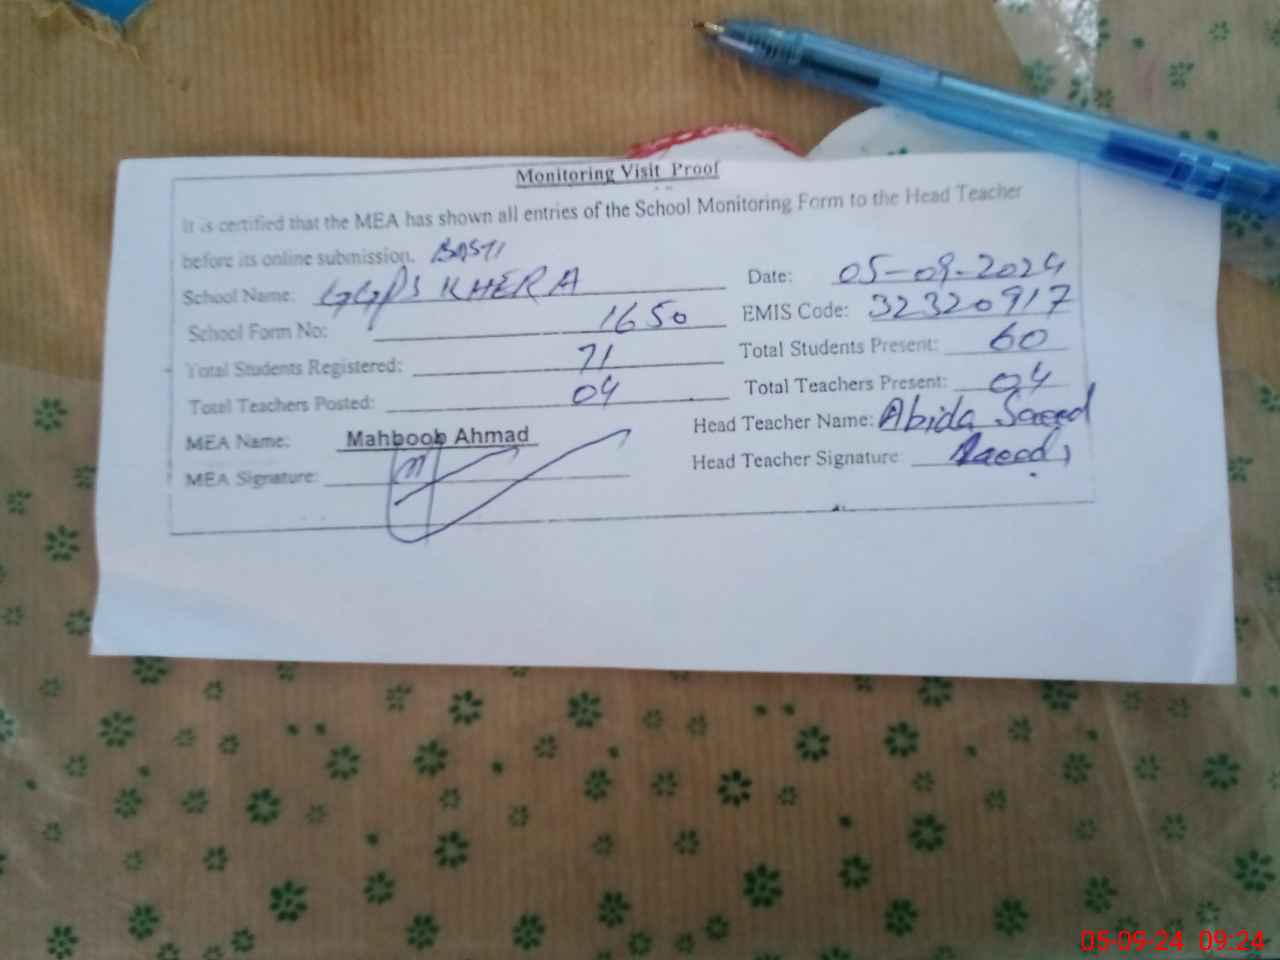 Monitoring Visit Proof
It is certified that the MEA has shown all entries of the School Monitoring Form to the Head Teacher
before its online submission. BASTI
School Name: GGPS KHERA Date: 05-09-2024
School Form No: 1650 EMIS Code: 32320917
Total Students Registered: 71 Total Students Present: 60
Total Teachers Posted: 04 Total Teachers Present: 04
MEA Name: Mahboob Ahmad Head Teacher Name: Abida Saeed
MEA Signature: Head Teacher Signature: Saeed
05-09-24 09:24